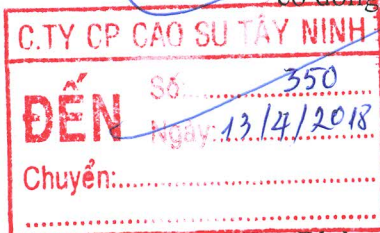 cổ đông
C.TY CP CAO SU TÂY NINH
ĐẾN
Số:.............350
Ngày:.13/4/2018
Chuyển: